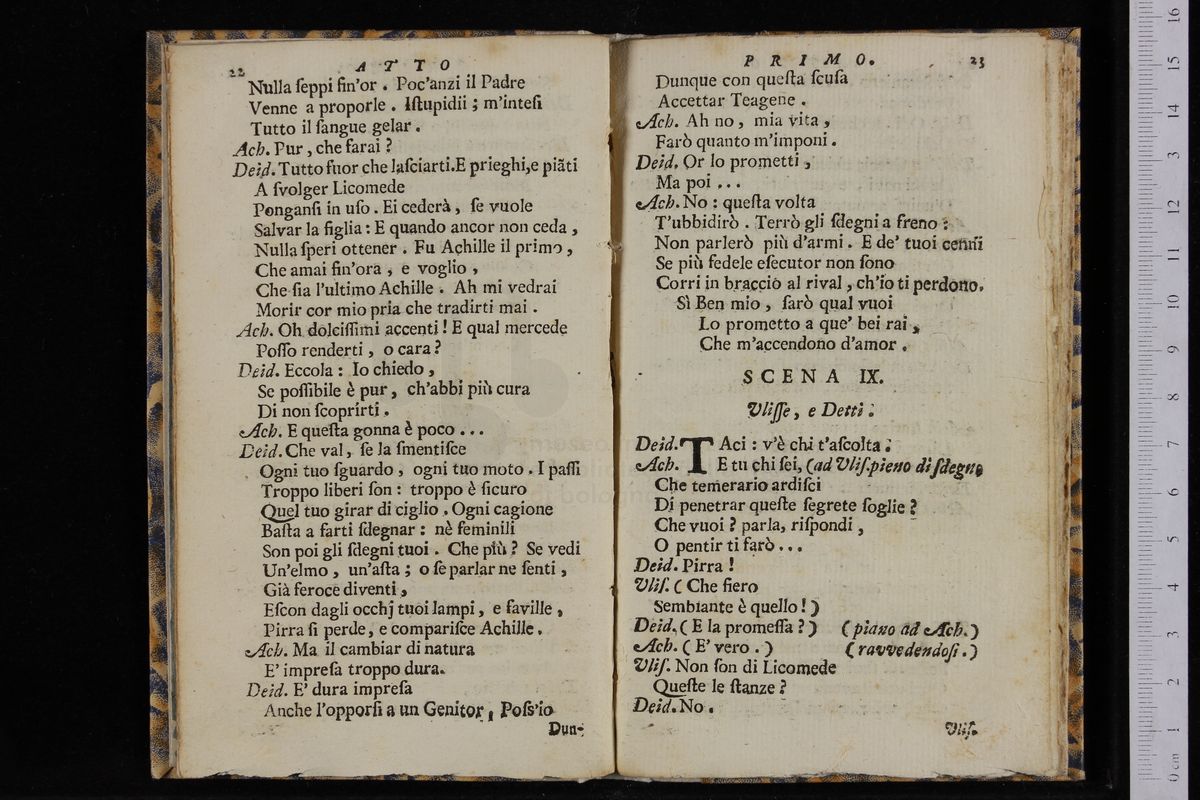 22 ATTO
Nulla ſeppi fin'or . Poc'anzi il Padre
Venne a proporle . Iſtupidii ; m'inteſi
Tutto il ſangue gelar .
Ach. Pur , che farai ?
Deid. Tutto fuor che laſciarti.E prieghi,e piãti
A ſvolger Licomede
Ponganſi in uſo . Ei cederà , ſe vuole
Salvar la figlia : E quando ancor non ceda ,
Nulla ſperi ottener . Fu Achille il primo ,
Che amai fin'ora , e voglio ,
Che ſia l'ultimo Achille . Ah mi vedrai
Morir cor mio pria che tradirti mai .
Ach. Oh dolciſſimi accenti ! E qual mercede
Poſſo renderti , o cara ?
Deid. Eccola : Io chiedo ,
Se poſſibile è pur , ch'abbi più cura
Di non ſcoprirti .
Ach. E queſta gonna è poco . . .
Deid. Che val , ſe la ſmentiſce
Ogni tuo ſguardo , ogni tuo moto . I paſſi
Troppo liberi ſon : troppo è ſicuro
Quel tuo girar di ciglio . Ogni cagione
Baſta a farti ſdegnar : nè feminili
Son poi gli ſdegni tuoi . Che più ? Se vedi
Un'elmo , un'aſta ; o ſe parlar ne ſenti ,
Già feroce diventi ,
Eſcon dagli occhj tuoi lampi , e faville ,
Pirra ſi perde , e compariſce Achille .
Ach. Ma il cambiar di natura
E' impreſa troppo dura.
Deid. E' dura impreſa
Anche l'opporſi a un Genitor , Poſs'io
Dun-
PRIMO. 23
Dunque con queſta ſcuſa
Accettar Teagene .
Ach. Ah no , mia vita ,
Farò quanto m'imponi .
Deid. Or lo prometti ,
Ma poi . . .
Ach. No : queſta volta
T'ubbidirò . Terrò gli ſdegni a freno :
Non parlerò più d'armi . E de' tuoi cenni
Se più fedele eſecutor non ſono
Corri in braccio al rival , ch'io ti perdono.
Sì Ben mio , ſarò qual vuoi
Lo prometto a que' bei rai ,
Che m'accendono d'amor .
SCENA IX.
Vliſſe , e Detti .
Deid. TAci : v'è chi t'aſcolta .
Ach. E tu chi ſei, (ad Vliſ.pieno di ſdegno
Che temerario ardiſci
Di penetrar queſte ſegrete ſoglie ?
Che vuoi ? parla, riſpondi ,
O pentir ti farò . . .
Deid. Pirra !
Vliſ. ( Che fiero
Sembiante è quello ! )
Deid. ( E la promeſſa ? ) (piano ad Ach.)
Ach. ( E' vero . ) (ravvedendoſi .)
Vliſ. Non ſon di Licomede
Queſte le ſtanze ?
Deid. No .
Vliſ.